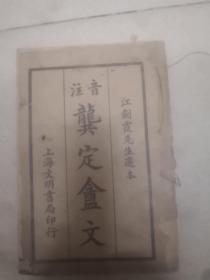 江劍霞先生選本
音注
龔定盦文
上海文明書局印行